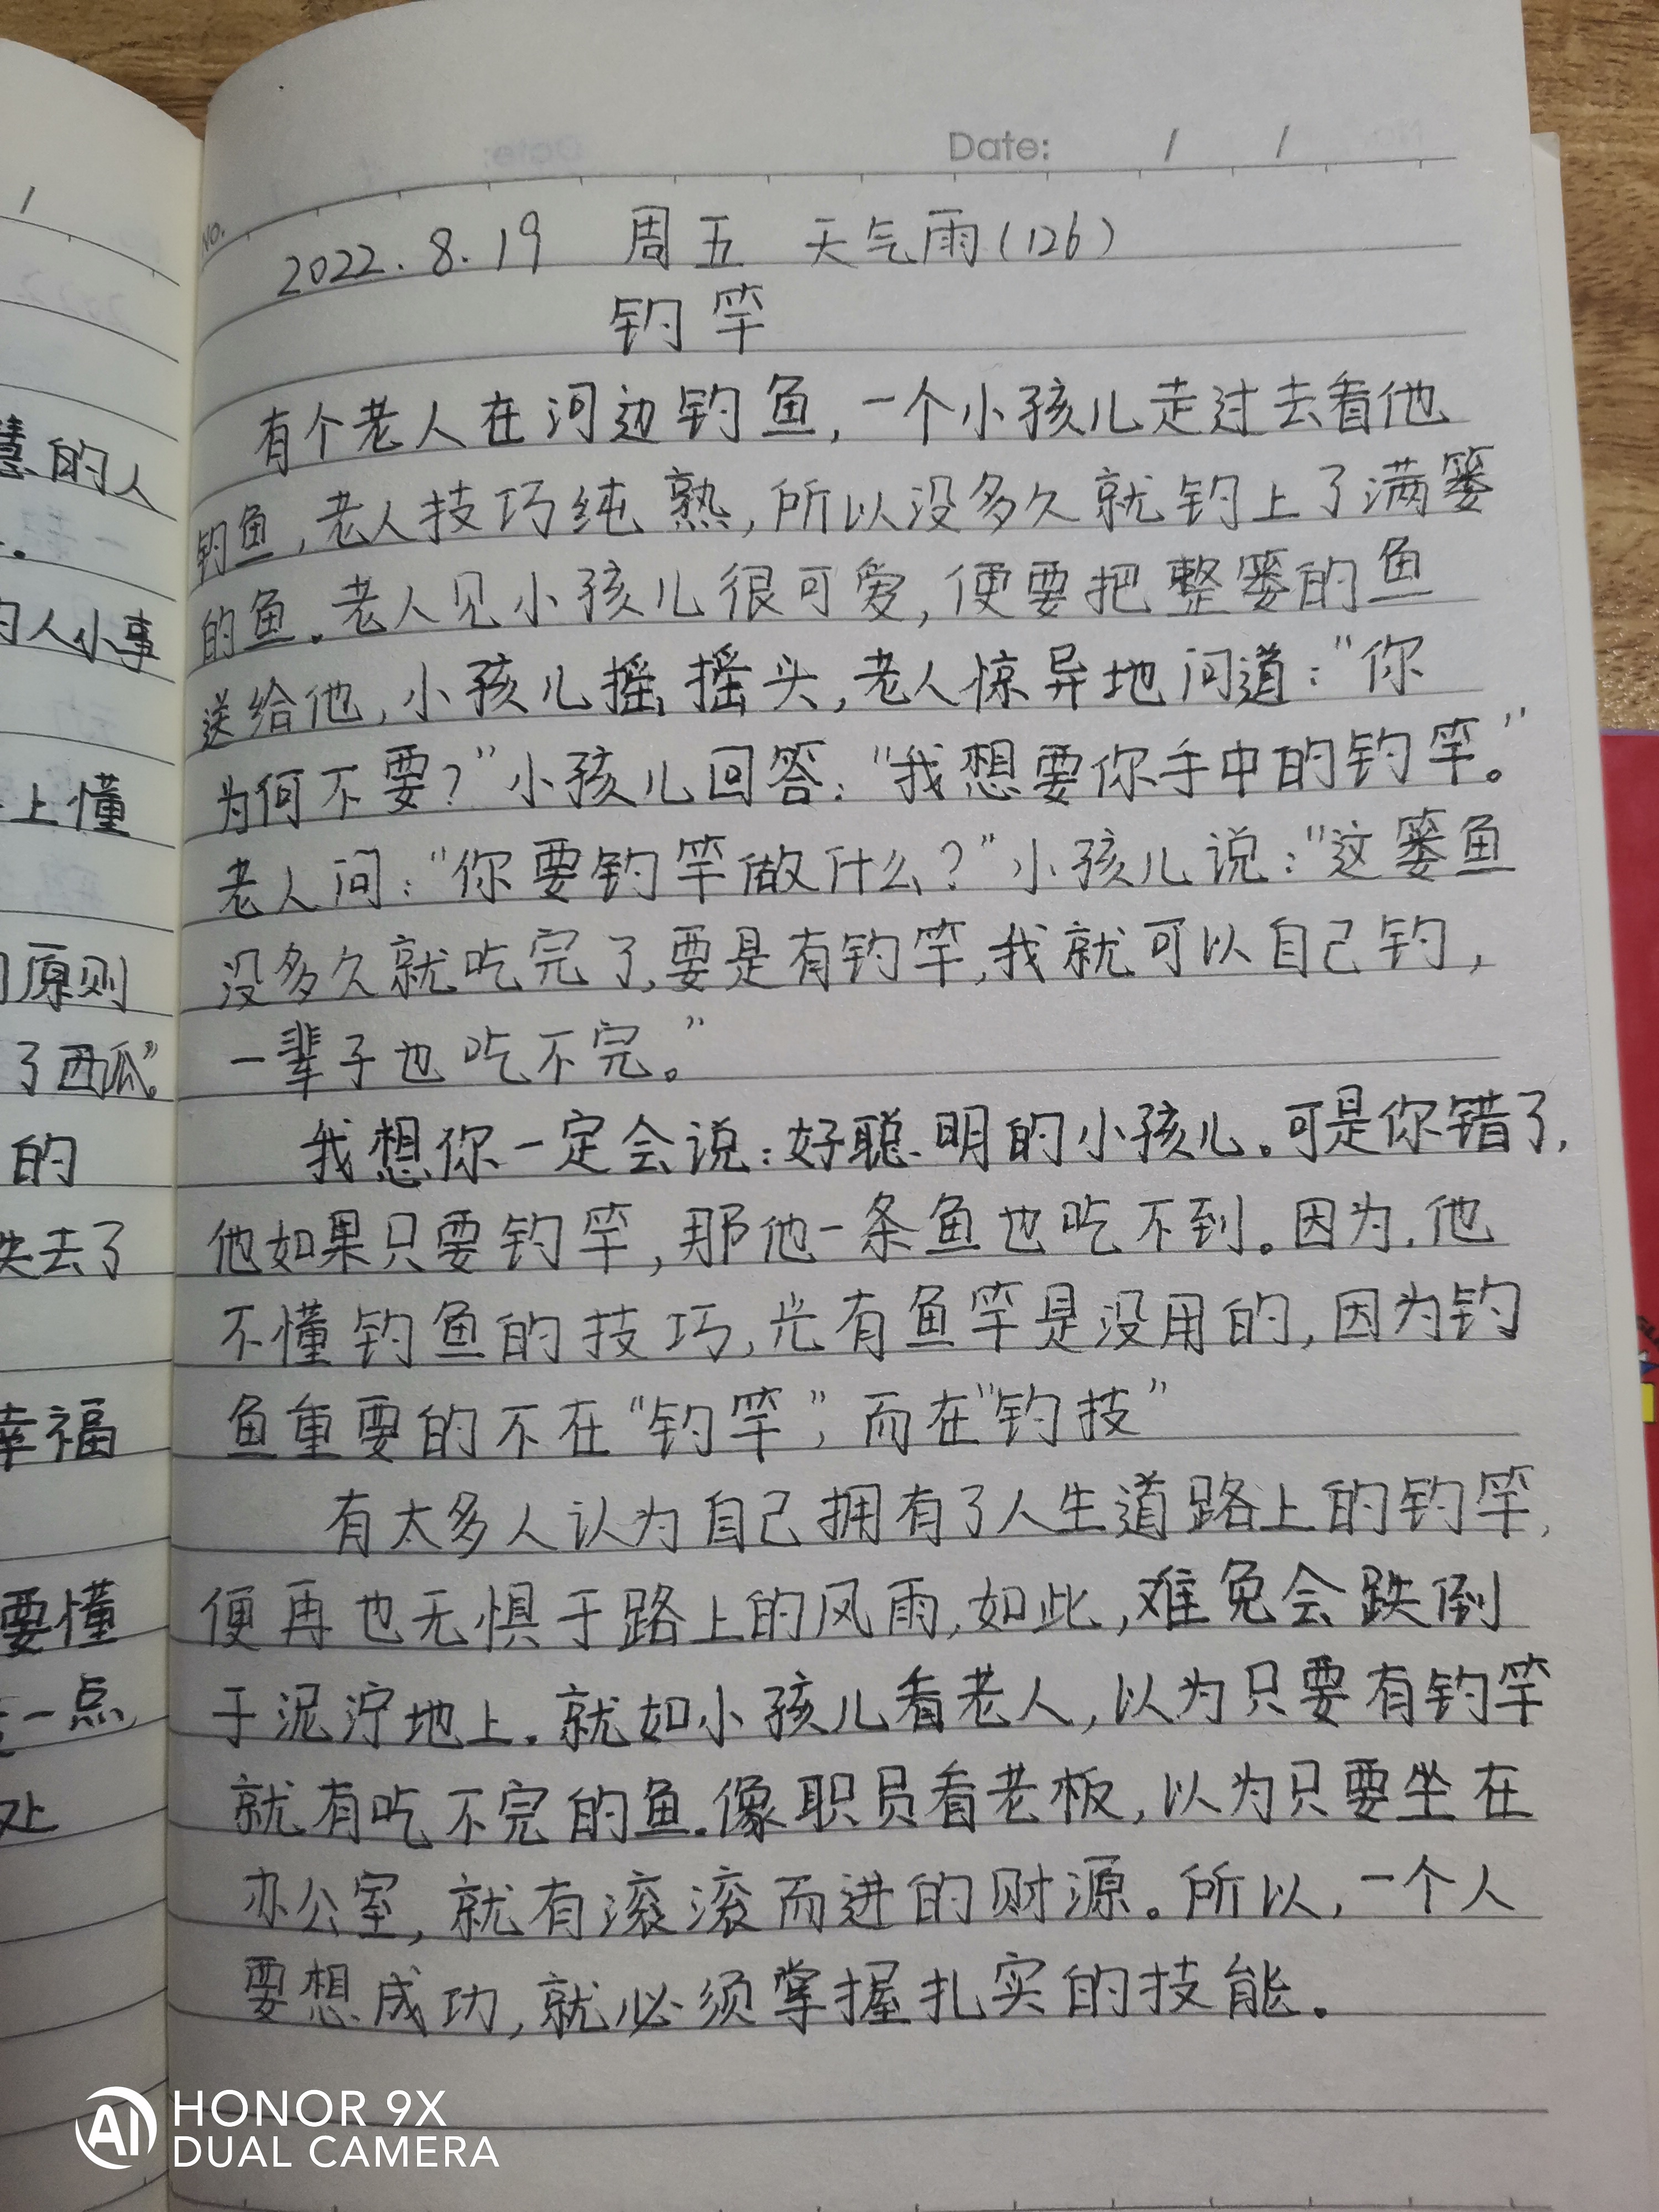 /
慧的人
的人小事
上懂
原则
了西瓜”。
的
失去了
幸福
要懂
一点
处
Date: / /
No.
2022.8.19 周五 天气雨(126)
钓竿
有个老人在河边钓鱼,一个小孩儿走过去看他
钓鱼,老人技巧纯熟,所以没多久就钓上了满篓
的鱼.老人见小孩儿很可爱,便要把整篓的鱼
送给他,小孩儿摇摇头,老人惊异地问道:“你
为何不要?”小孩儿回答:“我想要你手中的钓竿。”
老人问:“你要钓竿做什么?”小孩儿说:“这篓鱼
没多久就吃完了,要是有钓竿,我就可以自己钓,
一辈子也吃不完。”
我想你一定会说:好聪明的小孩儿。可是你错了,
他如果只要钓竿,那他一条鱼也吃不到。因为.他
不懂钓鱼的技巧,光有鱼竿是没用的,因为钓
鱼重要的不在“钓竿”,而在“钓技”
有太多人认为自己拥有了人生道路上的钓竿,
便再也无惧于路上的风雨,如此,难免会跌倒
于泥泞地上.就如小孩儿看老人,以为只要有钓竿
就有吃不完的鱼.像职员看老板,以为只要坐在
办公室,就有滚滚而进的财源。所以,一个人
要想成功,就必须掌握扎实的技能.
HONOR 9X
DUAL CAMERA